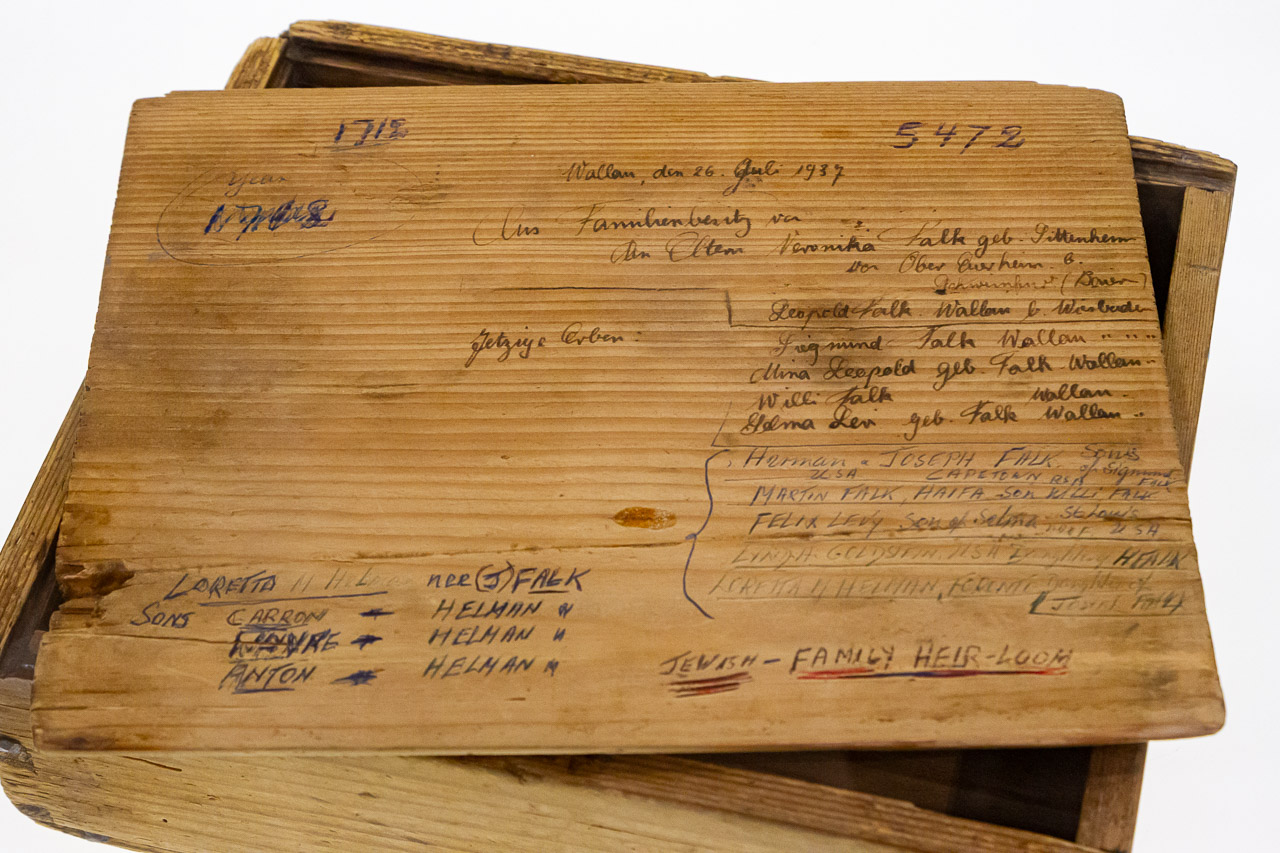 1712
5472
Year
Wallau, den 26. Juli 1937
Aus Familienbesitz von
den Eltern Veronika Falk geb. Sittenheim
von Ober Euerheim b.
(Baiern)
Leopold Falk. Wallau b. Wiesbaden
Jetzige Erben:
Siegmund Falk Wallau " " "
Mina Leopold geb. Falk Wallau "
Willi Falk Wallau "
Selma Levi geb. Falk Wallau "
Herman & JOSEPH FALK SONS
USA CAPETOWN RSA of Sigmund FALK
MARTIN FALK, HAIFA SON WILLI FALK
FELIX LEVY Son of Selma St Louis
USA
LYNDA GOLDSTEIN USA Daughter H FALK
LORETTA H HELMAN, Daughter of
JOSEPH FALK
LORETTA H nee (J) FALK
SONS CARRON - HELMAN "
HELMAN "
ANTON - HELMAN "
JEWISH - FAMILY HEIR-LOOM